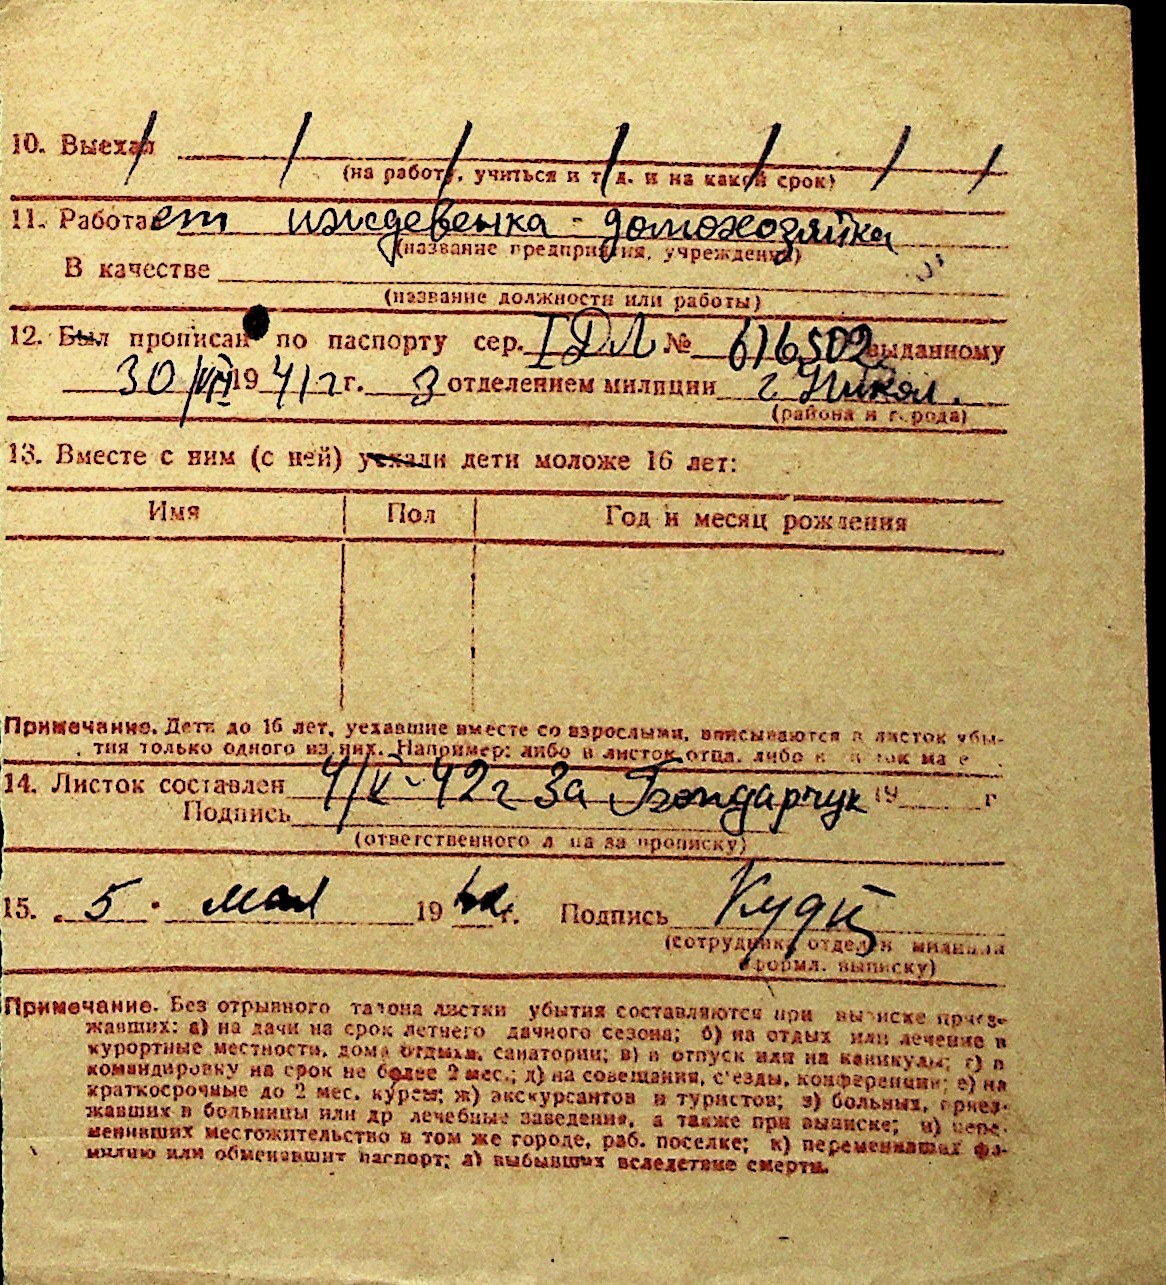 10. Выехал / / / / / / /
(на работу, учиться и т. д. и на какой срок)
11. Работает иждевенка - домохозяйка
(название предприятия, учреждения)
В качестве
(название должности или работы)
12. Был прописан по паспорту сер. I ДЛ № 616502 выданному
30/VII 1941 г г. 3 отделением милиции г. Никол.
(района и города)
13. Вместе с ним (с ней) уехали дети моложе 16 лет:
Имя Пол Год и месяц рождения
Примечание. Дети до 16 лет, уехавшие вместе со взрослыми, вписываются в листок убы-
тия только одного из них. Например: либо в листок отца, либо в
14. Листок составлен 4/V-42 г За Бондарчук 19 г
Подпись
(ответственного лица за прописку)
15. 5 мая 1942 г. Подпись
(сотрудника отделен милиции
оформл. выписку)
Примечание. Без отрывного талона листки убытия составляются при выписке приез-
жавших: а) на дачи на срок летнего дачного сезона; б) на отдых или лечение в
курортные местности, дома отдыха, санатории; в) в отпуск или на каникулы; г) в
командировку на срок не более 2 мес.; д) на совещания, с'езды, конференции; е) на
краткосрочные до 2 мес. курсы; ж) экскурсантов и туристов; з) больных, приез-
жавших в больницы или др лечебные заведения, а также при выписке; и) пере-
менивших местожительство в том же городе, раб. поселке; к) переменивших фа-
милию или обменявшит паспорт; л) выбывших вследствие смерти.